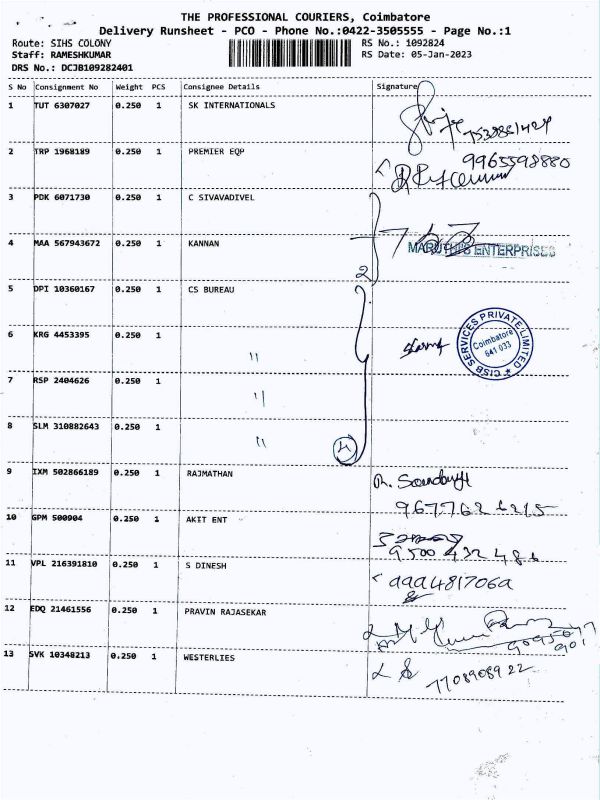 THE PROFESSIONAL COURIERS, Coimbatore
Delivery Runsheet - PCO - Phone No.:0422-3505555 - Page No.:1
Route: SIHS COLONY RS No.: 1092824
Staff: RAMESHKUMAR RS Date: 05-Jan-2023
DRS No.: DCJB109282401
S No Consignment No Weight PCS Consignee Details Signature
1 TUT 6307027 0.250 1 SK INTERNATIONALS
2 TRP 1968189 0.250 1 PREMIER EQP 9965598880
3 PDK 6071730 0.250 1 C SIVAVADIVEL
4 MAA 567943672 0.250 1 KANNAN MARUTHI'S ENTERPRISES
2
5 DPI 10360167 0.250 1 CS BUREAU
6 KRG 4453395 0.250 1 "
CISB SERVICES PRIVATE LIMITED
Coimbatore
641 033
7 RSP 2404626 0.250 1 "
8 SLM 310882643 0.250 1 "
4
9 IXM 502866189 0.250 1 RAJMATHAN
967762 6215
10 GPM 500904 0.250 1 AKIT ENT
9500 432 486
11 VPL 216391810 0.250 1 S DINESH
9994817069
12 EDQ 21461556 0.250 1 PRAVIN RAJASEKAR
13 SVK 10348213 0.250 1 WESTERLIES
7708908922